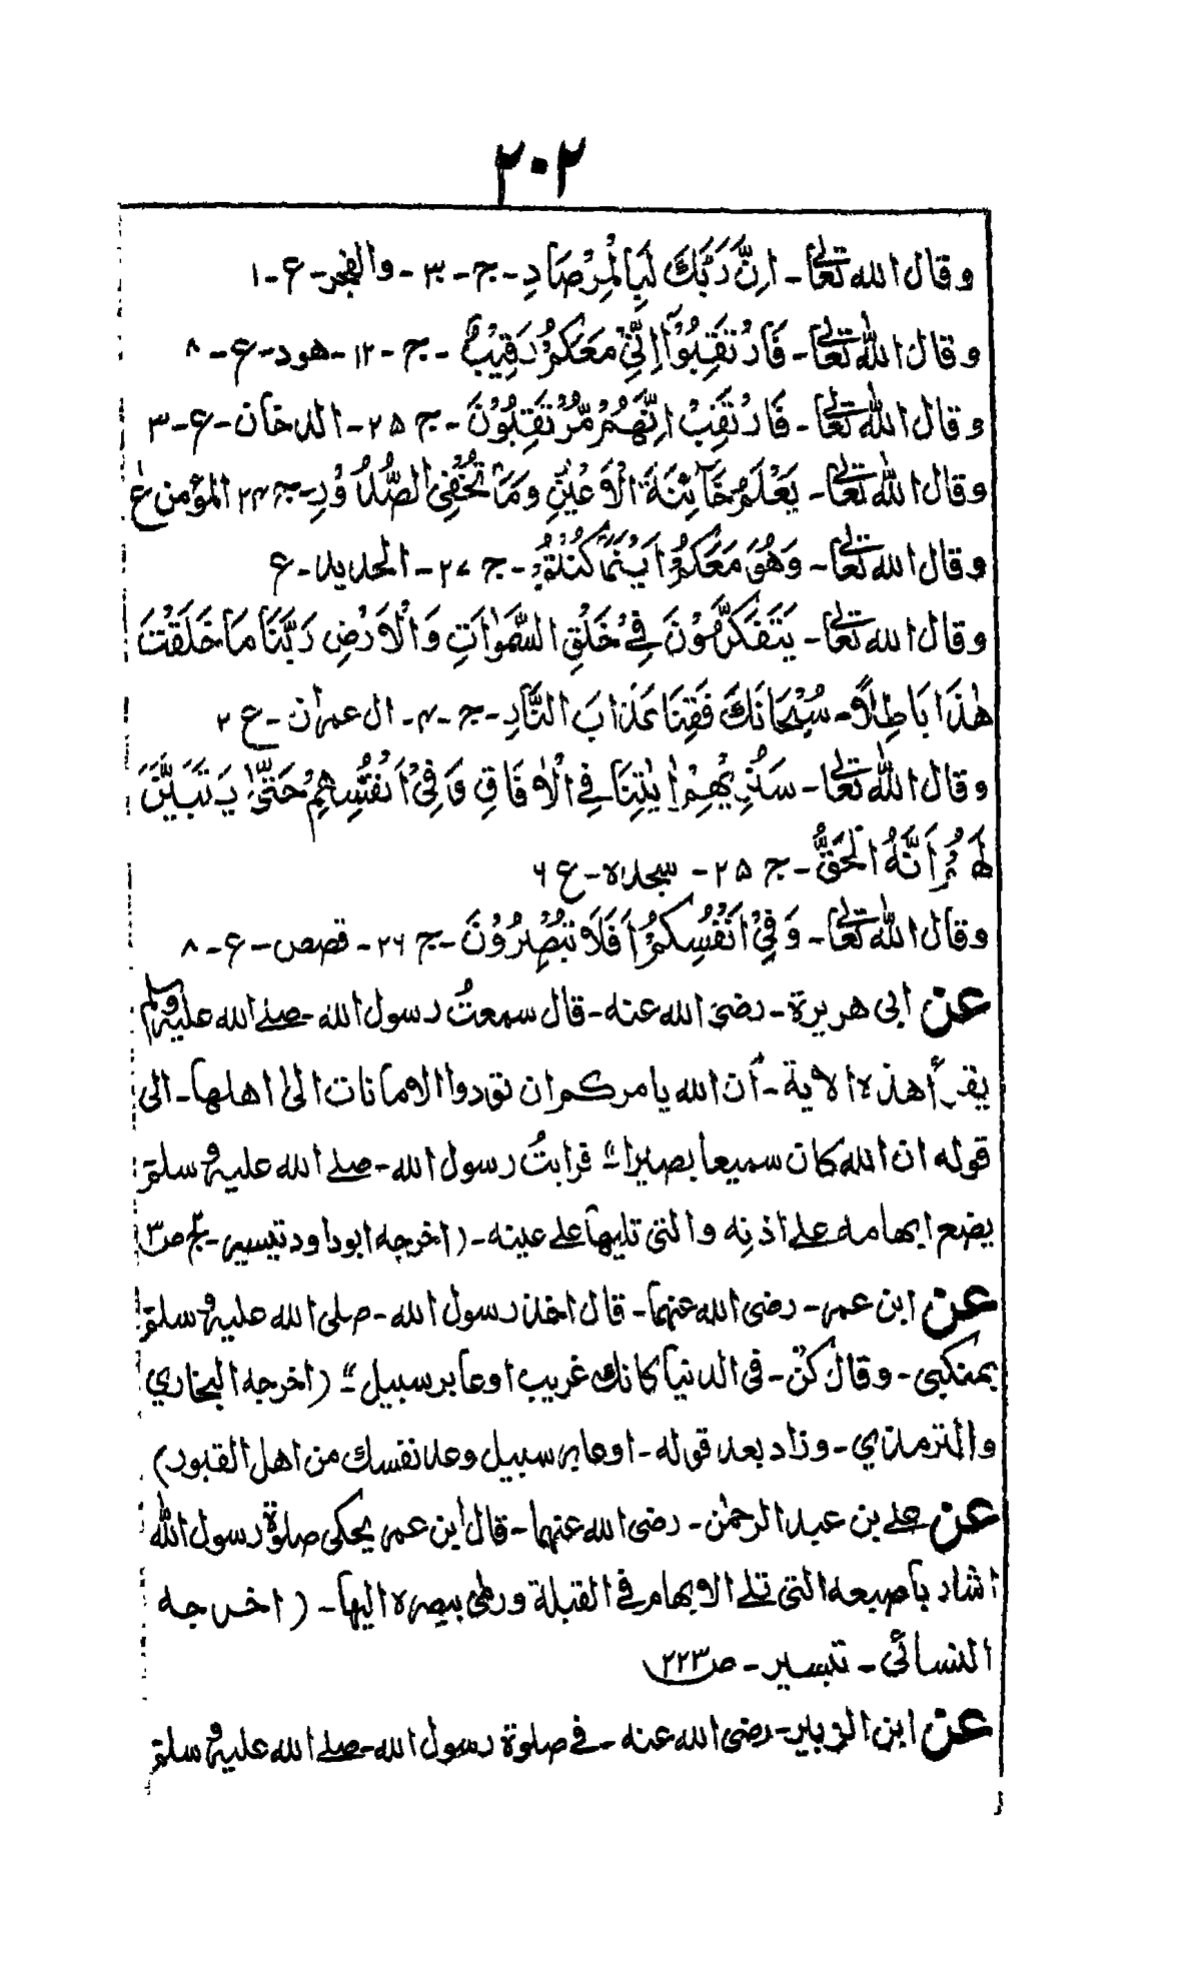 ۲۰۲
وقال الله تعالیٰ - اِنَّ رَبَّكَ لَبِالْمِرْصَادِ - ج - ۳۰ - والفجر - ع - ۱
وقال اللّٰه تعالیٰ - فَارْتَقِبُوْآ اِنِّیْ مَعَكُمْ رَقِیْبٌ - ج - ۱۲ - هود - ع - ۸
وقال اللّٰه تعالیٰ - فَارْتَقِبْ اِنَّهُمْ مُّرْتَقِبُوْنَ - ج ۲۵ - الدخان - ع - ۳
وقال اللّٰه تعالیٰ - يَعْلَمُ خَآئِنَةَ الْاَعْيُنِ وَمَا تُخْفِی الصُّدُوْرِ - ج ۲۴ المؤمن ع
وقال الله تعالیٰ - وَهُوَ مَعَكُمْ اَيْنَمَا كُنْتُمْ - ج ۲۷ - الحديد - ع
وقال الله تعالیٰ - يَتَفَكَّرُوْنَ فِیْ خَلْقِ السَّمٰوٰاتِ وَالْاَرْضِ رَبَّنَا مَا خَلَقْتَ
هٰذَا بَاطِلًا - سُبْحَانَكَ فَقِنَا عَذَابَ النَّارِ - ج - ۴ - ال عمران - ع ۲
وقال اللّٰه تعالیٰ - سَنُرِيْهِمْ اٰيٰتِنَا فِی الْاٰفَاقِ وَفِیْ اَنْفُسِهِمْ حَتّٰی يَتَبَيَّنَ
لَهُمْ اَنَّهُ الْحَقُّ - ج ۲۵ - سجده - ع ۶
وقال اللّٰه تعالیٰ - وَفِیْ اَنْفُسِكُمْ اَفَلَا تُبْصِرُوْنَ - ج ۲۶ - قصص - ع - ۸
عن ابی هريرة - رضی الله عنه - قال سمعتُ رسول الله - صلے الله عليه وسلم
يقرأ هذه الاية - ان الله يامركم ان تؤدوا الامانات الیٰ اهلها - الی
قوله ان الله كان سميعا بصيرا" قرايتُ رسول الله - صلے الله عليه وسلم
يضع ابهامه علے اذنه والتی تليها علے عينه - (اخرجه ابوداود تيسير - ج ص
عن ابن عمر - رضی الله عنهما - قال اخذ رسول الله - صلی الله عليه وسلم
بمنكبی - وقال كن - فی الدنيا كانك غريب او عابر سبيل" (اخرجه البخاري
والترمذي - وزاد بعد قوله - او عابر سبيل وعد نفسك من اهل القبور)
عن علے بن عبد الرحمٰن - رضی الله عنهما - قال ابن عمر يحكی صلوة رسول اللّٰه
اشار باصبعه التی تلے الابهام فے القبلة ورمیٰ ببصره اليها - (اخرجه
النسائی - تيسير - ص ۲۲۳
عن ابن الزبير - رضی الله عنه - فے صلوة رسول الله - صلے الله عليه وسلم